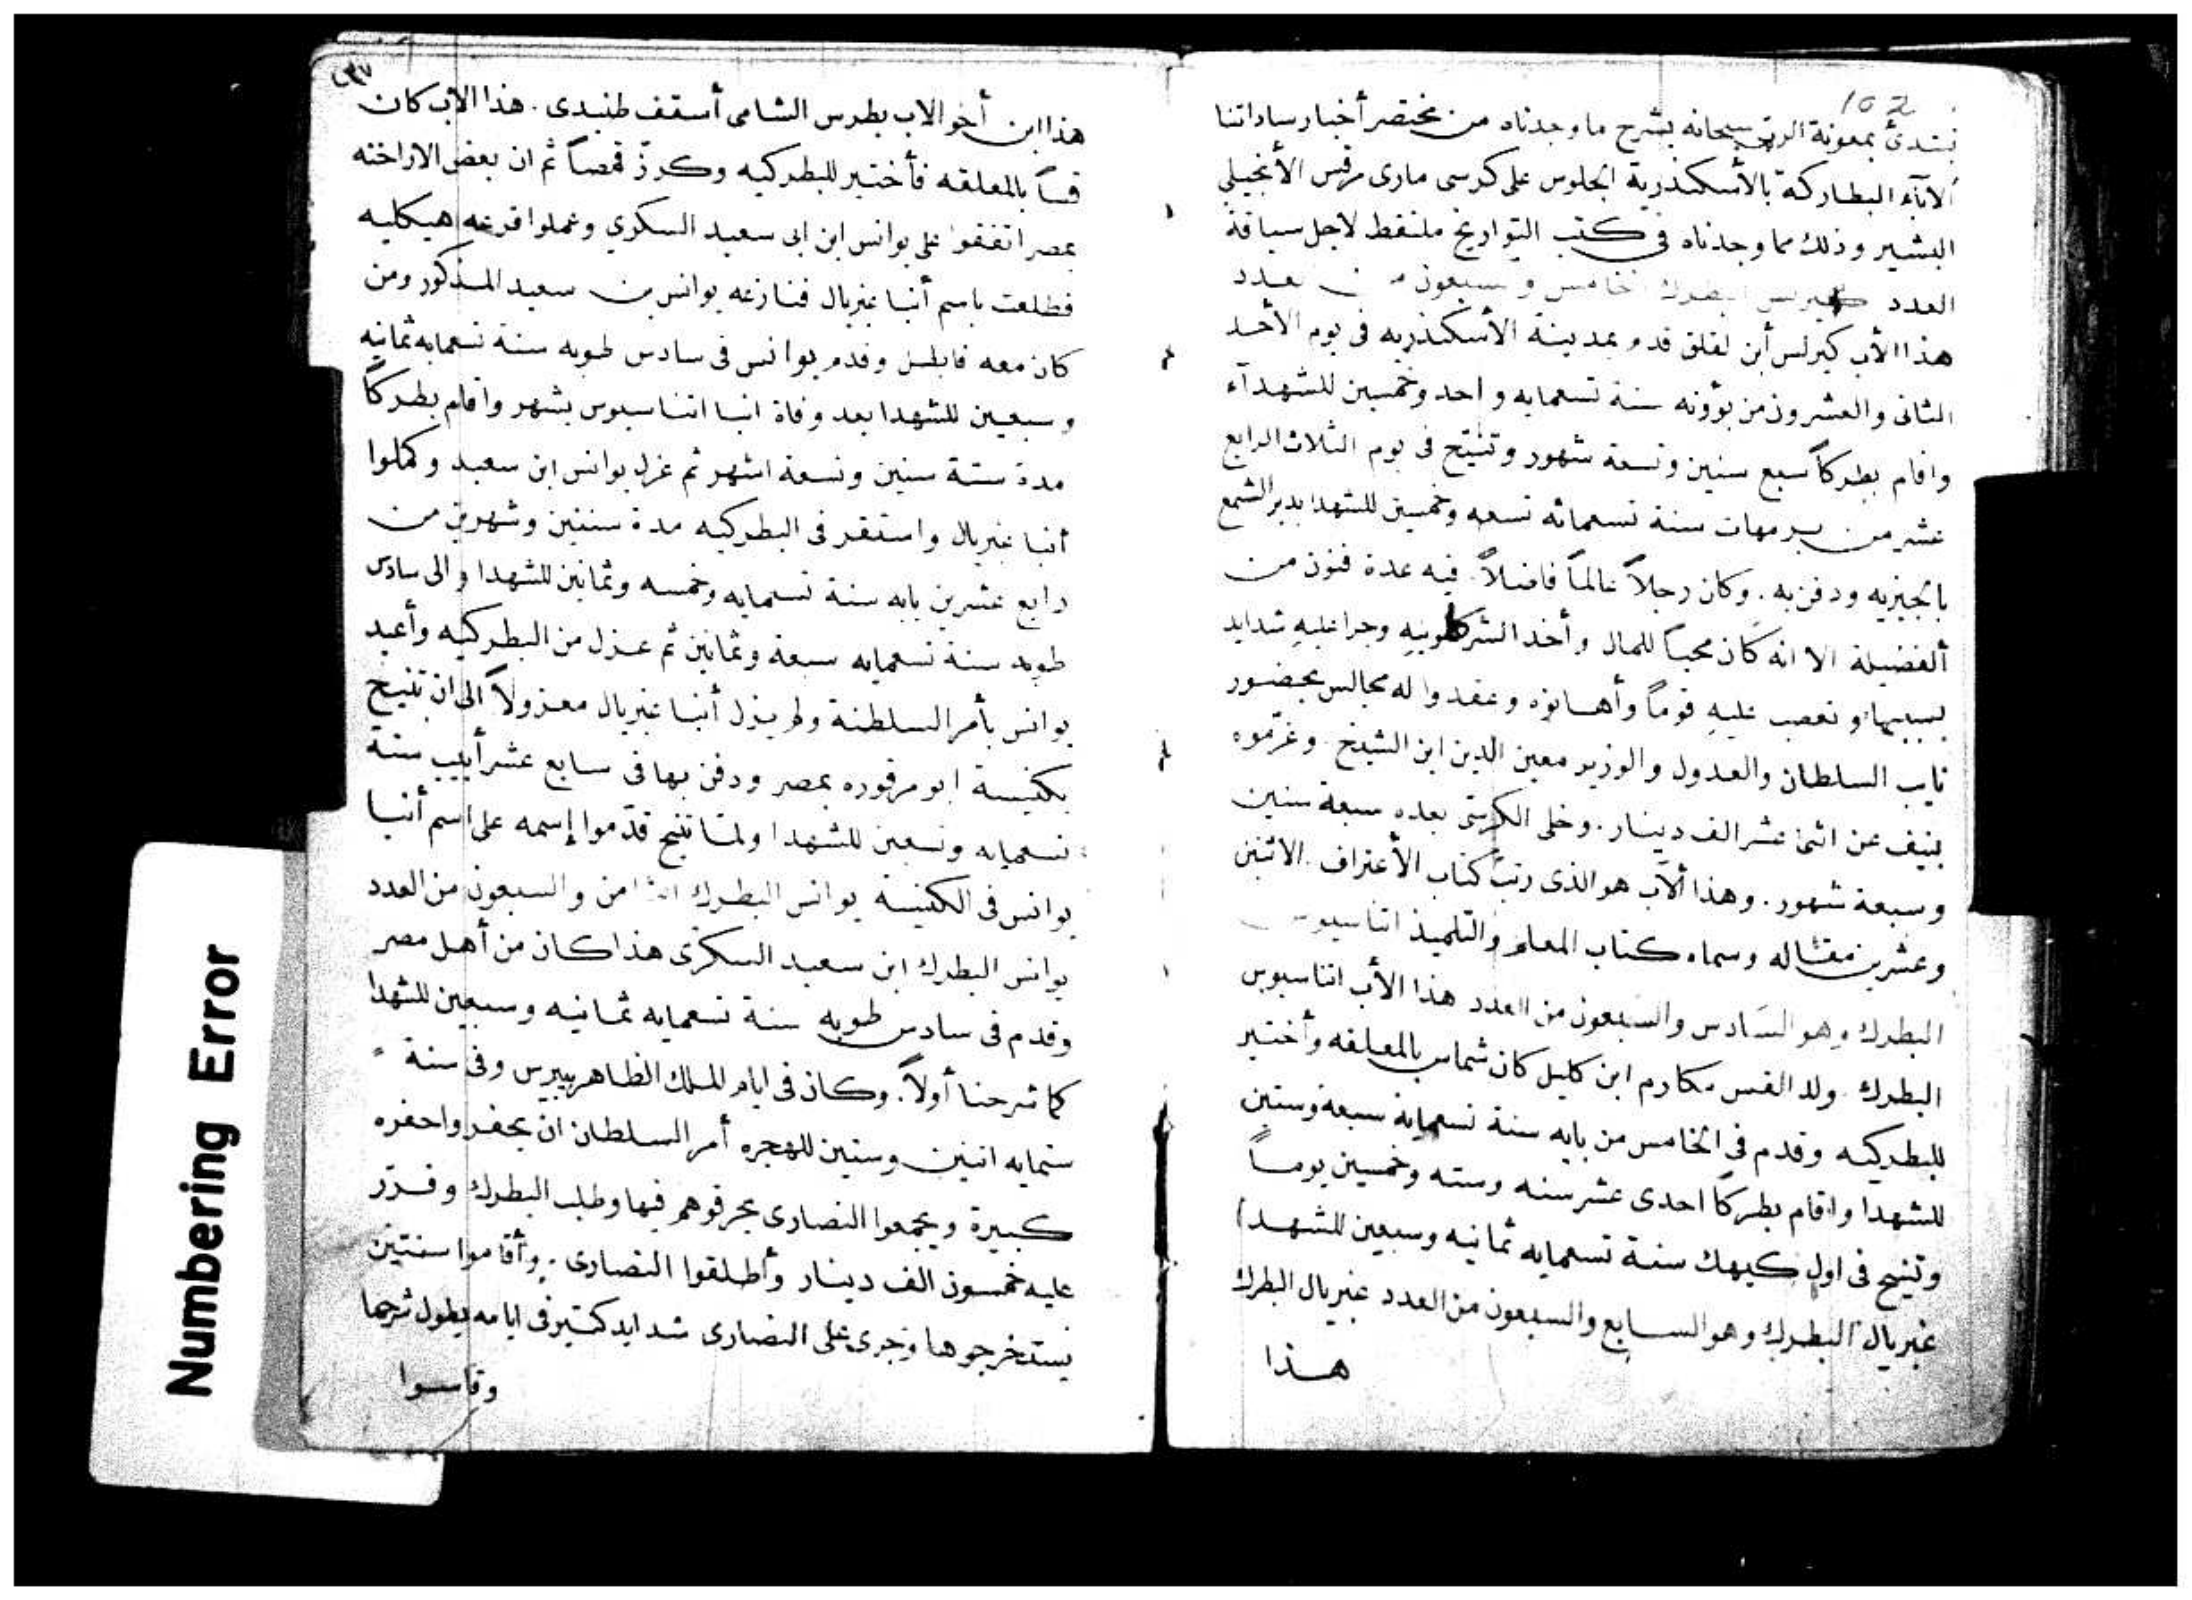 102
نبتدئ بمعونة الرب سبحانه بشرح ما وجدناه من مختصر أخبار ساداتنا
الآباء البطاركة بالأسكندرية الجلوس على كرسى مارى مرقس الأنجيلي
البشير وذلك مما وجدناه فى كتب التواريخ ملتقط لاجل سياقة
العدد كيرلس البطرك الخامس و سبعون من العدد
هذا الأب كيرلس أبن لقلق قدم بمدينة الأسكندريه فى يوم الأحد
الثانى والعشرون من بؤونه سنة تسعمايه واحد وخمسين للشهدآء
واقام بطركاً سبع سنين وتسعة شهور وتنيّح فى يوم الثلاث الرابع
عشر من برمهات سنة تسعمائه تسعه وخمسين للشهدا بدير الشمع
بالجيزيه ودفن به . وكان رجلاً عالماً فاضلاً فيه عدة فنون من
ألفضيلة الا انه كان محباً للمال وأخد الشرطونيه وجرا عليهِ شدايد
بسببها و تعصب عليهِ قوماً وأهانوه وعقدوا له مجالس بحضور
نايب السلطان والعدول والوزير معين الدين ابن الشيخ . وغرّموه
بنيف عن اثنى عشر الف دينار . وخلى الكرسى بعده سبعة سنين
وسبعة شهور . وهذا ألاب هو الذى رتب كتاب الأعتراف . الاثنين
وعشرين مقاله وسماه كتاب المعلم والتلميذ اتناسيوس
البطرك وهو السادس والسبعون من العدد هذا الأب اتناسيوس
البطرك . ولد القس مكارم ابن كليل كان شماس بالمعلقه وأختير
للبطركيه وقدم فى الخامس من بابه سنة تسعماية سبعة وستين
للشهدا واقام بطركاً احدى عشر سنه وسته وخمسين يوماً
وتنيح فى اول كيهك سنة تسعمايه ثمانيه وسبعين للشهدا
غبريال البطرك وهو السابع والسبعون من العدد غبريال البطرك
هذا
هذا ابن أخو الاب بطرس الشامى أسقف طنبدى . هذا الأب كان
قساً بالمعلقه فأختير للبطركيه وكرز قمصاً ثم ان بعض الاراخنه
بمصر اتفقوا على يوانس ابن ابى سعيد السكري وعملوا قرعه هيكليه
فطلعت باسم أنبا غبريال فنازعه يوانس بن سعيد المذكور ومن
كان معه فابطل وقدم يوانس فى سادس طوبه سنة تسعمايه ثمانيه
وسبعين للشهدا بعد وفاة انبا اتناسيوس بشهر واقام بطركاً
مدة ستة سنين وتسعة اشهر ثم عزل يوانس ابن سعيد وكملوا
أنبا غبريال واستقر فى البطركيه مدة سنتين وشهرين من
رابع عشرين بابه سنة تسعمايه وخمسه وثمانين للشهدا والى سادس
طوبه سنة تسعمايه سبعة وثمانين ثم عزل من البطركيه وأعيد
يوانس بأمر السلطنة ولم يزل أنبا غبريال معزولاً الى ان تنيح
بكنيسة ابو مرقوره بمصر ودفن بها فى سابع عشر أبيب سنة
تسعمايه وتسعين للشهدا ولما تنيح قدّموا إسمه على اسم أنبا
يوانس فى الكنيسة يوانس البطرك الثامن والسبعون من العدد
يوانس البطرك ابن سعيد السكرى هذا كان من أهل مصر
وقدم فى سادس طوبه سنة تسعمايه ثمانيه وسبعين للشهدا
كما شرحنا أولاً . وكان فى ايام الملك الظاهر بيبرس وفى سنة
ستمايه اتنين وستين للهجره أمر السلطان ان يحفروا حفره
كبيرة ويجمعوا النصارى يحرقوهم فيها وطلب البطرك وقرّر
عليه خمسون الف دينار وأطلقوا النصارى . وأقاموا سنتين
يستخرجوها وجرى على النصارى شدايد كتير فى ايامه يطول شرحها
وقاسوا
Numbering Error